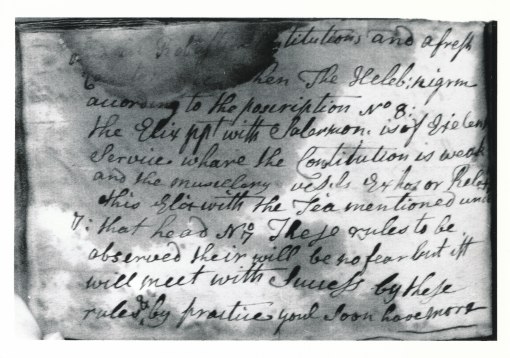 stitutions and afresh
then The Heleb: nigrm
according to the pourription No 8:
the Elix ppt with Salarmon. is of Exelent
Service whare the Constitution is weak
and the musculary vesels Exhos or Relax
this Elix with the Tea mentioned under
7: that head No 7 These rules to be
observed their will be no fear but itt
will meet with Sucess by these
rules, & by practice youl Soon have more